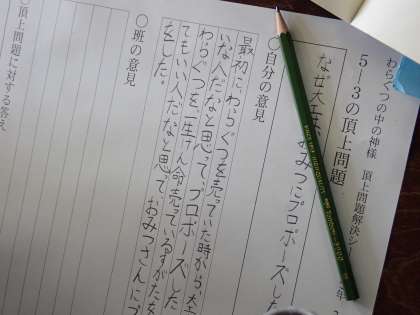 わらぐつの中の神様 頂上問題解決シー
5―3の頂上問題
年
なぜ大工さ おみつにプロポーズした
○自分の意見
最初に、わらぐつを売っていた時から、大
いな人だなと思って、プロポーズした
わらぐつを一生けん命売っているすがたを
てもいい人だなと思って、おみつさんにプ
をした。
○班の意見
○頂上問題に対する答え